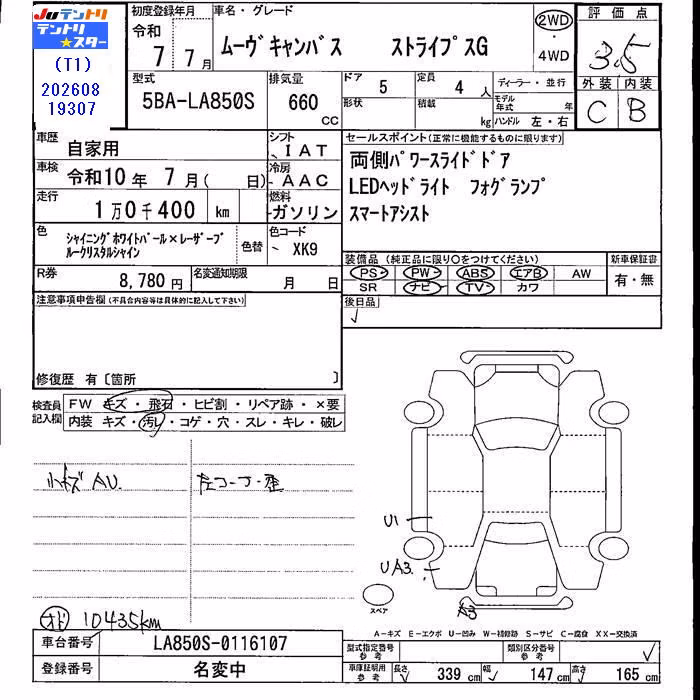 Juテントリ
テントリ
★スター
(T1)
202608
19307
初度登録年月
令和
7 7月
車名・グレード
ムーヴキャンバス ストライプスG
2WD
・
4WD
評価点
3.5
外装 内装
C B
型式
5BA-LA850S
排気量
660
cc
ドア 5
形状
定員 4 人
積載 kg
ディーラー・並行
モデル年式 年
ハンドル 左・右
車歴 自家用
シフト IAT
車検 令和10年 7月( 日)
冷房 AAC
走行 1万0千400 km
燃料 ガソリン
色 シャイニングホワイトパール×レーザーブ
ルークリスタルシャイン
色替
色コード XK9
R券 8,780円
名変通知期限 月 日
セールスポイント(正常に機能するものに限ります)
両側パワースライドドア
LEDヘッドライト フォグランプ
スマートアシスト
装備品(純正品に限り○をつけてください)
PS PW ABS エアB AW
SR ナビ TV カワ
新車保証書
有・無
後日品
✓
注意事項申告欄(不具合内容等は具体的に記入して下さい)
修復歴 有〔箇所 〕
検査員
記入欄
FW キズ・飛石・ヒビ割・リペア跡・×要
内装 キズ・汚レ・コゲ・穴・スレ・キレ・破レ
小キズ AU.
オド 10435km
U1
UA3.
A3
スペア
A-キズ E-エクボ U-凹み W-補修跡 S-サビ C-腐食 XX-交換済
車台番号 LA850S-0116107
登録番号 名変中
型式指定番号
参考
類別区分番号
参考
✓
車庫証明用
参考
長さ 339 cm
幅 147 cm
高さ 165 cm